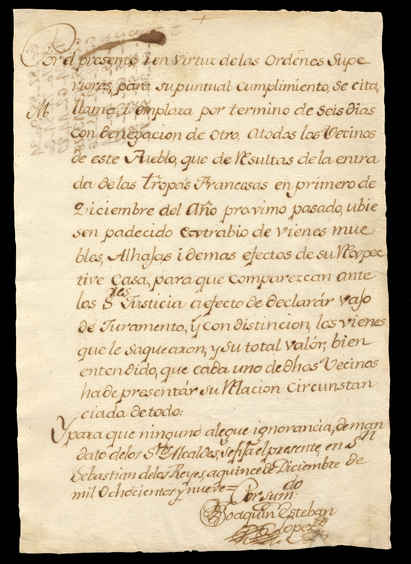 Por el presente i en virtud de las Ordenes Supe
riores, para su puntual cumplimiento, se cita,
llama, i emplaza por termino de seis dias
con denegacion de otro, atodos los Vecinos
de este Pueblo, que de Resultas de la entra
da de las tropas Francesas en primero de
Diciembre del Año proximo pasado, ubie
sen padecido extrabio de vienes mue
bles, Alhajas i demas efectos de su Respec
tive Casa, para que comparezcan ante
los S.res Justicia a efecto de declarár vajo
de Juramento, y con distincion, los vienes
que le saquearon, y su total valór, bien
entendido, que cada uno de dhos Vecinos
ha de presentár su Relacion circunstan
ciada de todo:
Y para que ninguno alegue ignorancia, de man
dato de los S.res Alcaldes, se fija el presente, en S.n
Sebastian de los Reyes, a quince de Diciembre de
mil Ochocientos y nueve =
Por su m.do
Joaquin Esteban
Lopez